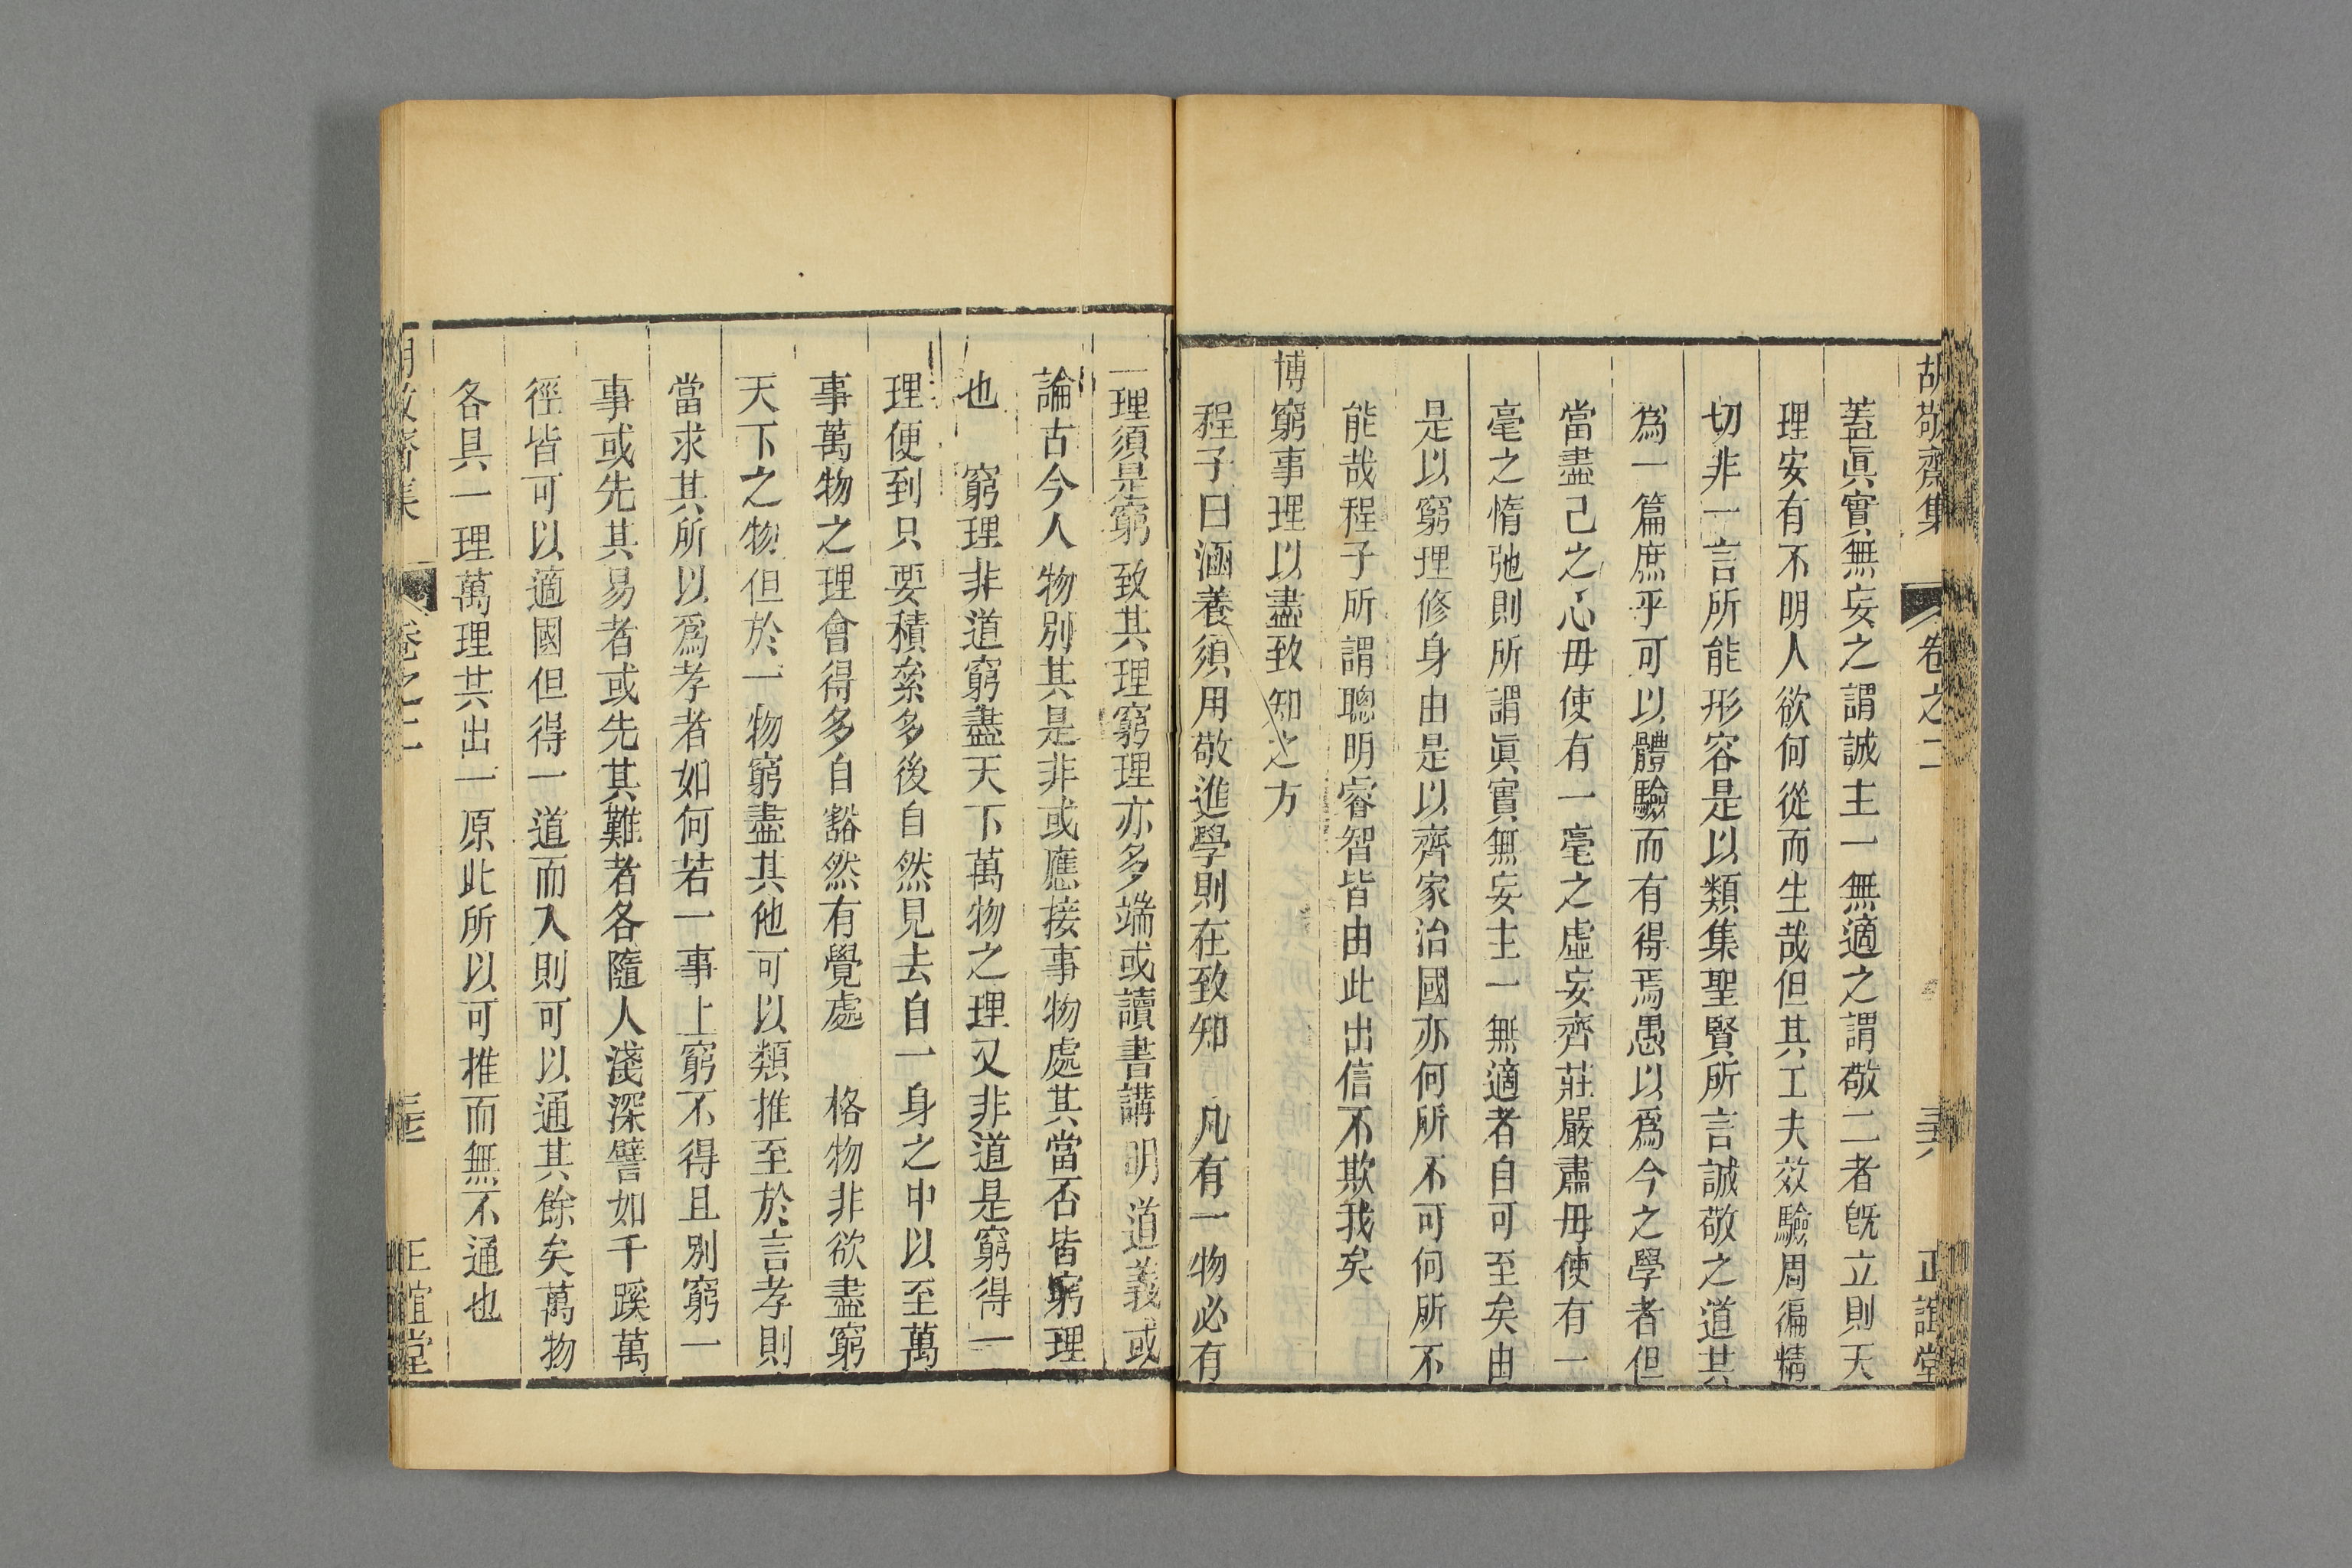 胡敬齋集 卷之二 正誼堂
蓋眞實無妄之謂誠主一無適之謂敬二者旣立則天
理安有不明人欲何從而生哉但其工夫效驗周徧精
切非一言所能形容是以類集聖賢所言誠敬之道其
爲一篇庶乎可以體驗而有得焉愚以爲今之學者但
當盡己之心毋使有一毫之虛妄齊莊嚴肅毋使有一
毫之惰弛則所謂眞實無妄主一無適者自可至矣由
是以窮理修身由是以齊家治國亦何所不可何所不
能哉程子所謂聰明睿智皆由此出信不欺我矣
博窮事理以盡致知之方
程子曰涵養須用敬進學則在致知 凡有一物必有
一理須是窮致其理窮理亦多端或讀書講明道義或
論古今人物別其是非或應接事物處其當否皆窮理
也 窮理非道窮盡天下萬物之理又非道是窮得一
理便到只要積絫多後自然見去自一身之中以至萬
事萬物之理會得多自豁然有覺處 格物非欲盡窮
天下之物但於一物窮盡其他可以類推至於言孝則
當求其所以爲孝者如何若一事上窮不得且別窮一
事或先其易者或先其難者各隨人淺深譬如千蹊萬
徑皆可以適國但得一道而入則可以通其餘矣萬物
各具一理萬理共出一原此所以可推而無不通也
胡敬齋集 卷之二 正誼堂